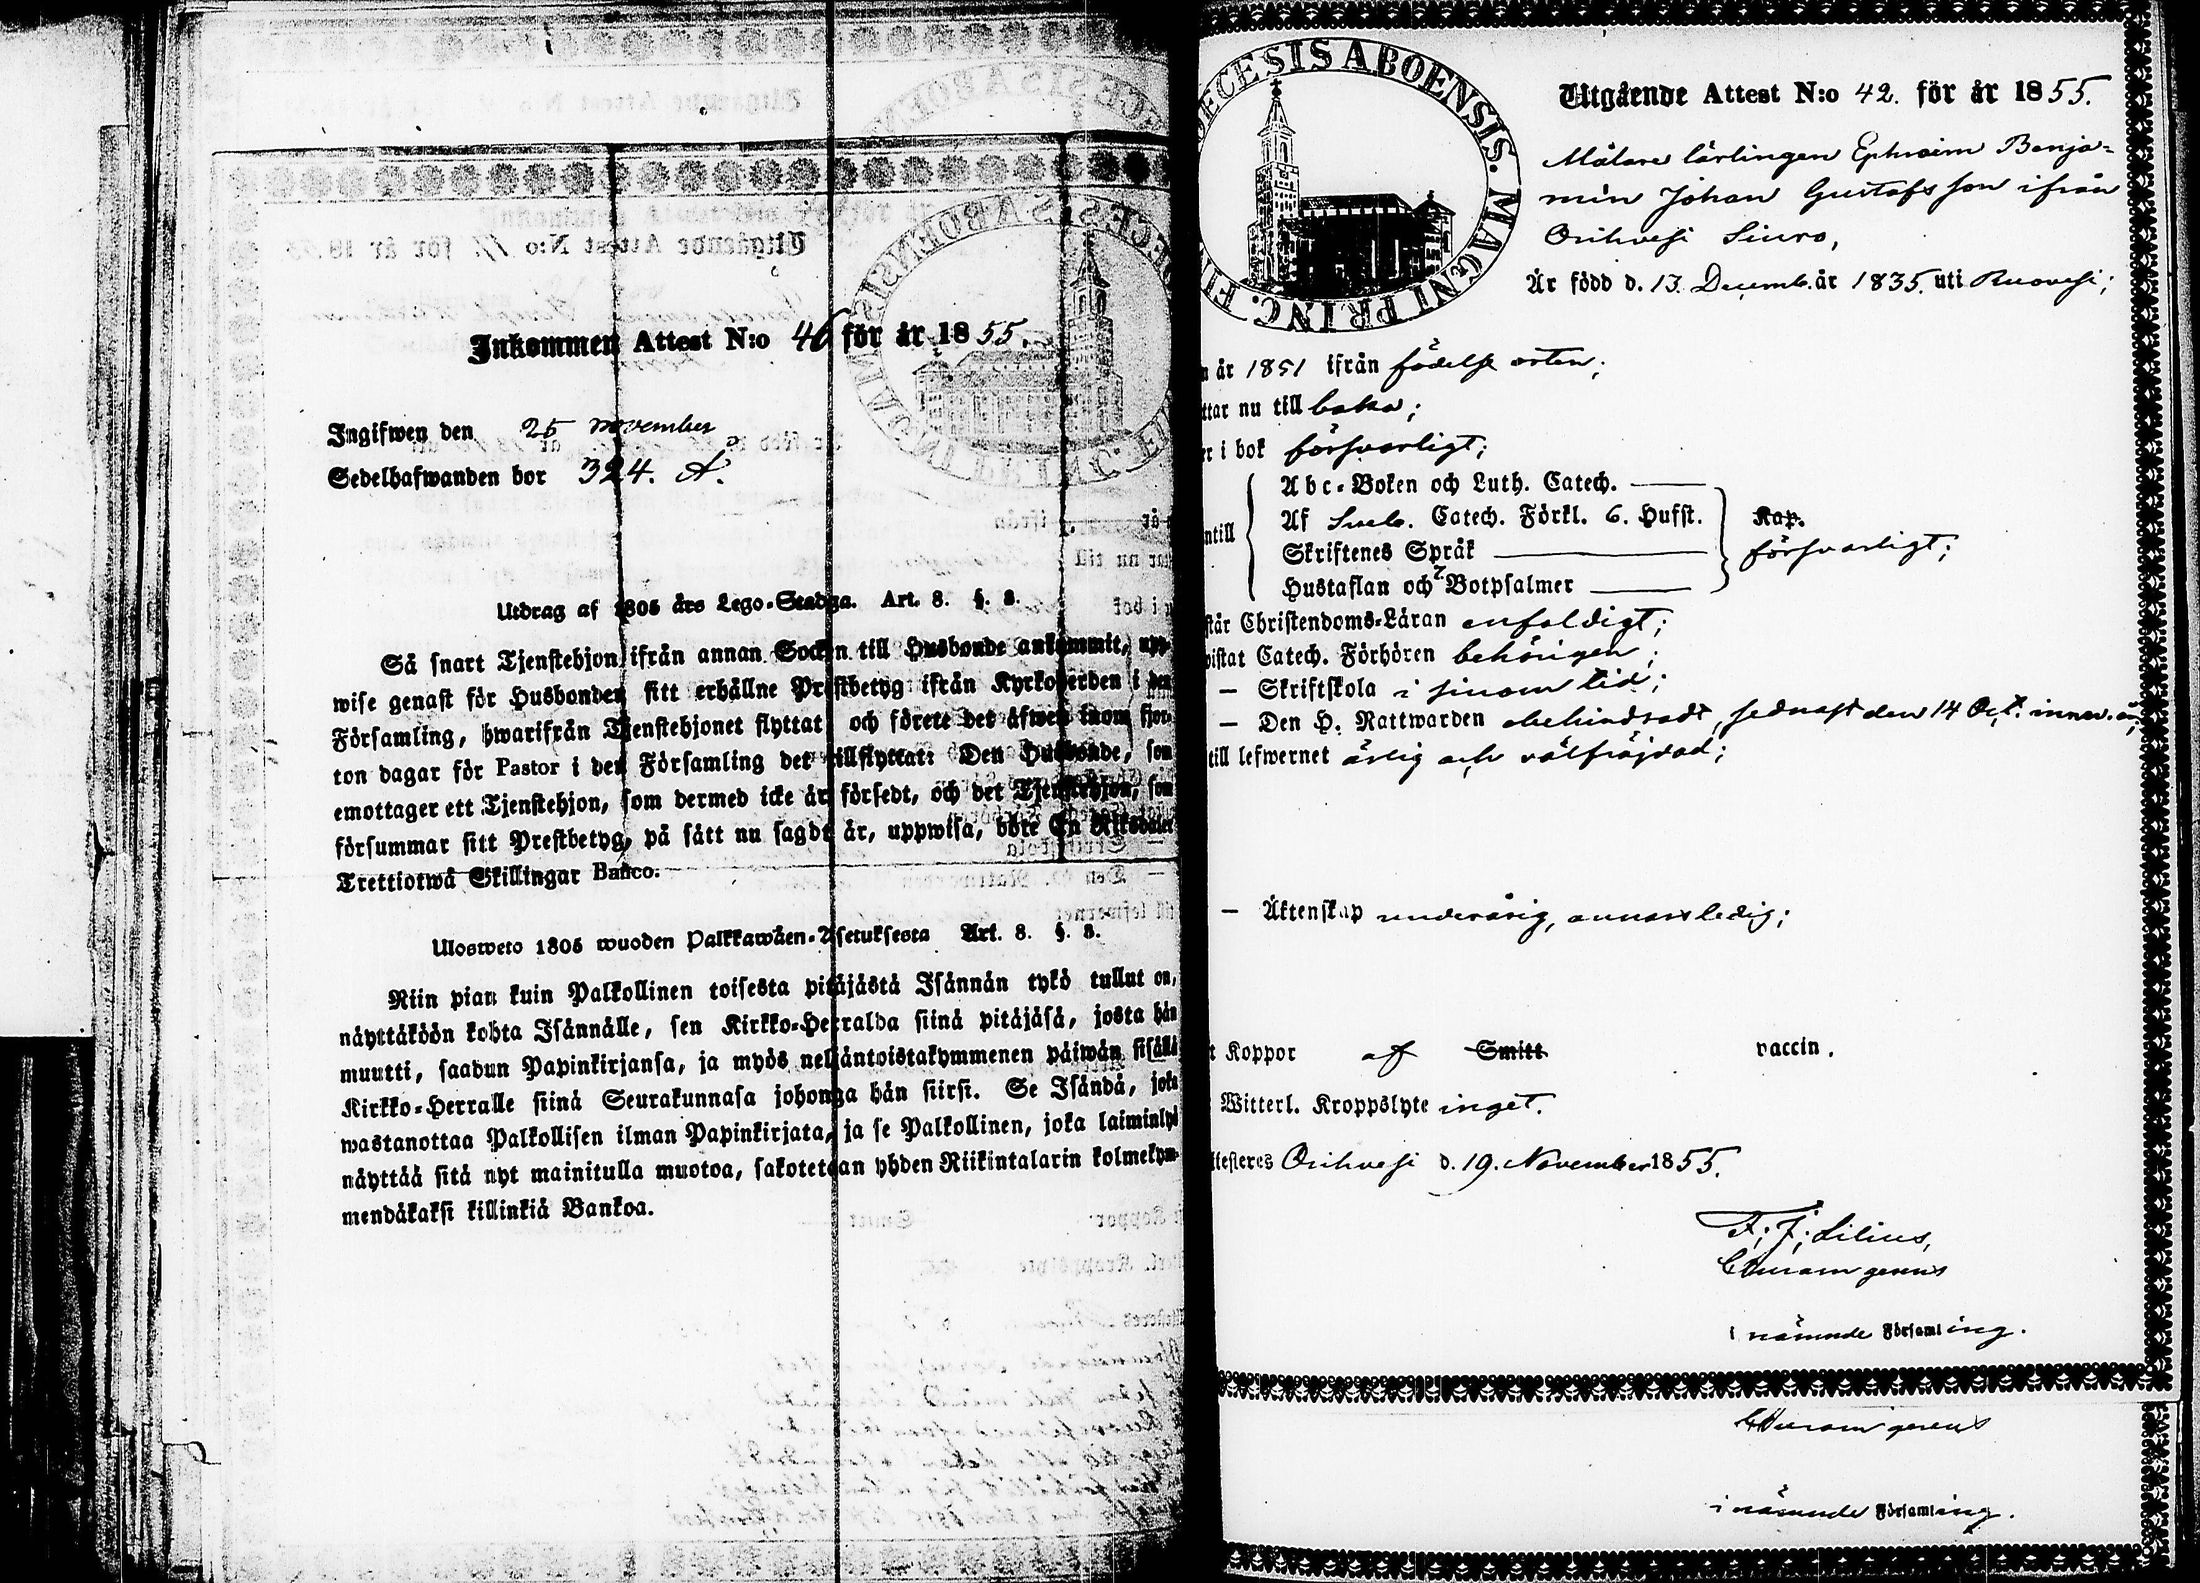 Inkommen Attest N:o 46 för år 1855.
Ingifwen den 25 november
Sedelhafwanden bor 324. A.
Utdrag af 1805 års Lego-Stadga. Art. 8. §. 8.
Så snart Tjenstehjon ifrån annan Socken till Husbonde ankommit, upp-
wise genast för Husbonden sitt erhållne Prestbetyg ifrån Kyrkoherden i den
Församling, hwarifrån Tjenstehjonet flyttat och förete det äfwen inom fjor-
ton dagar för Pastor i den Församling det tillflyttat: Den Husbonde, som
emottager ett Tjenstehjon, som dermed icke är försedt, och det Tjenstehjon, som
försummar sitt Prestbetyg, på sätt nu sagdt är, uppwisa, böte En Riksdaler
Trettiotwå Skillingar Banco.
Ulosweto 1805 wuoden Palkkawäen-Asetuksesta Art. 8. §. 8.
Niin pian kuin Palkollinen toisesta pitäjästä Isännän tykö tullut on,
näyttäköön kohta Isännälle, sen Kirkko-Herralda siinä pitäjäsä, josta hän
muutti, saadun Papinkirjansa, ja myös neljäntoistakymmenen päiwän sisällä
Kirkko-Herralle siinä Seurakunnasa johonga hän siirsi. Se Isändä, joka
wastanottaa Palkollisen ilman Papinkirjata, ja se Palkollinen, joka laiminlyö
näyttää sitä nyt mainitulla muotoa, sakotetaan yhden Riikintalarin kolmekym-
mendäkaksi killinkiä Bankoa.
DIOECESIS ABOENSIS. MAGNI PRINC. FI
Utgående Attest N:o 42. för år 1855.
Målare lärlingen Ephraim Benja-
min Johan Gustafsson ifrån
Orihvesi Siuro,
Är född d. 13. Decemb. år 1835. uti Ruovesi;
år 1851 ifrån födelse orten;
ttar nu till baka;
r i bok försvarligt;
Abc-Boken och Luth. Catech.
ntill Af Sveb. Catech. Förkl. 6. Hufst. Kap.
Skriftenes Språk försvarligt;
Hustaflan och 7 Botpsalmer
står Christendoms-Läran enfaldigt;
wistat Catech. Förhören behörigen;
— Skriftskola i sinom tid;
— Den H. Nattwarden obehindradt, sednast den 14 Oct. innev. år;
till lefwernet ärlig och välfräjdad;
— Äktenskap underårig, annars ledig;
t Koppor af Smitt vaccin.
Witterl. Kroppslyte inget.
ttesteres Orihvesi d. 19. November 1855.
F; J; Lilius,
Curam gerens
i nämnde Församling.
Curam gerens
i nämnde Församling.